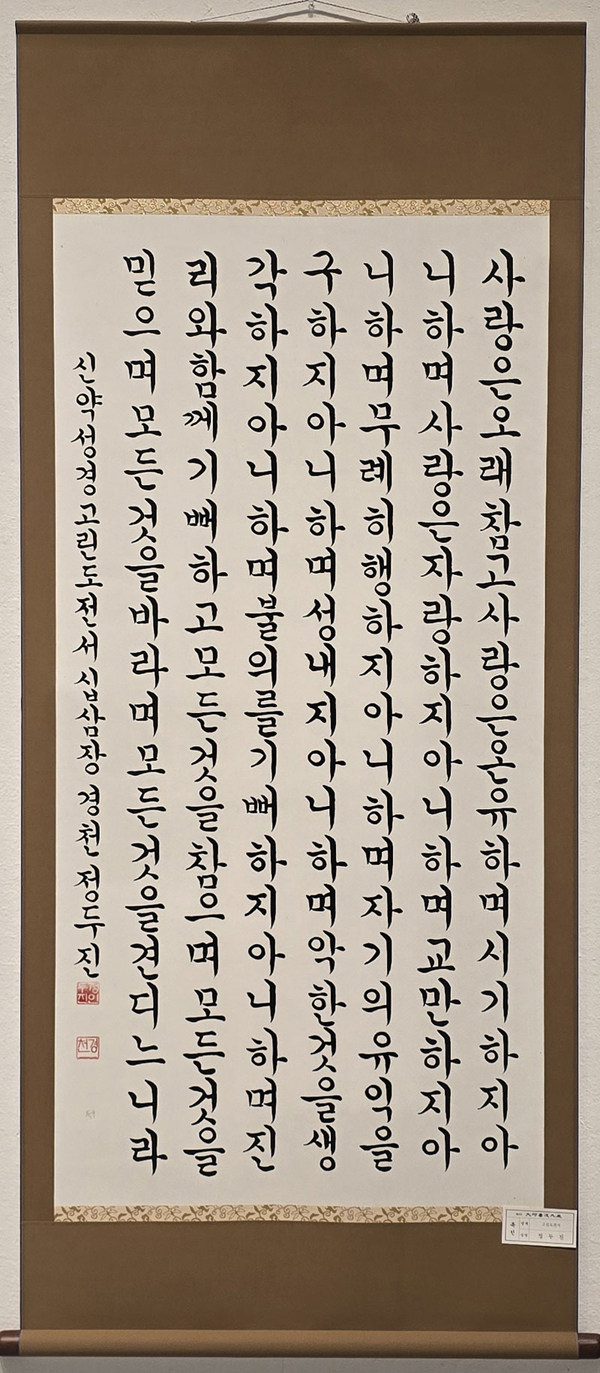 사랑은오래참고사랑은온유하며시기하지아
니하며사랑은자랑하지아니하며교만하지아
니하며무례히행하지아니하며자기의유익을
구하지아니하며성내지아니하며악한것을생
각하지아니하며불의를기뻐하지아니하며진
리와함께기뻐하고모든것을참으며모든것을
믿으며모든것을바라며모든것을견디느니라
신약성경고린도전서십삼장 경천 정두진